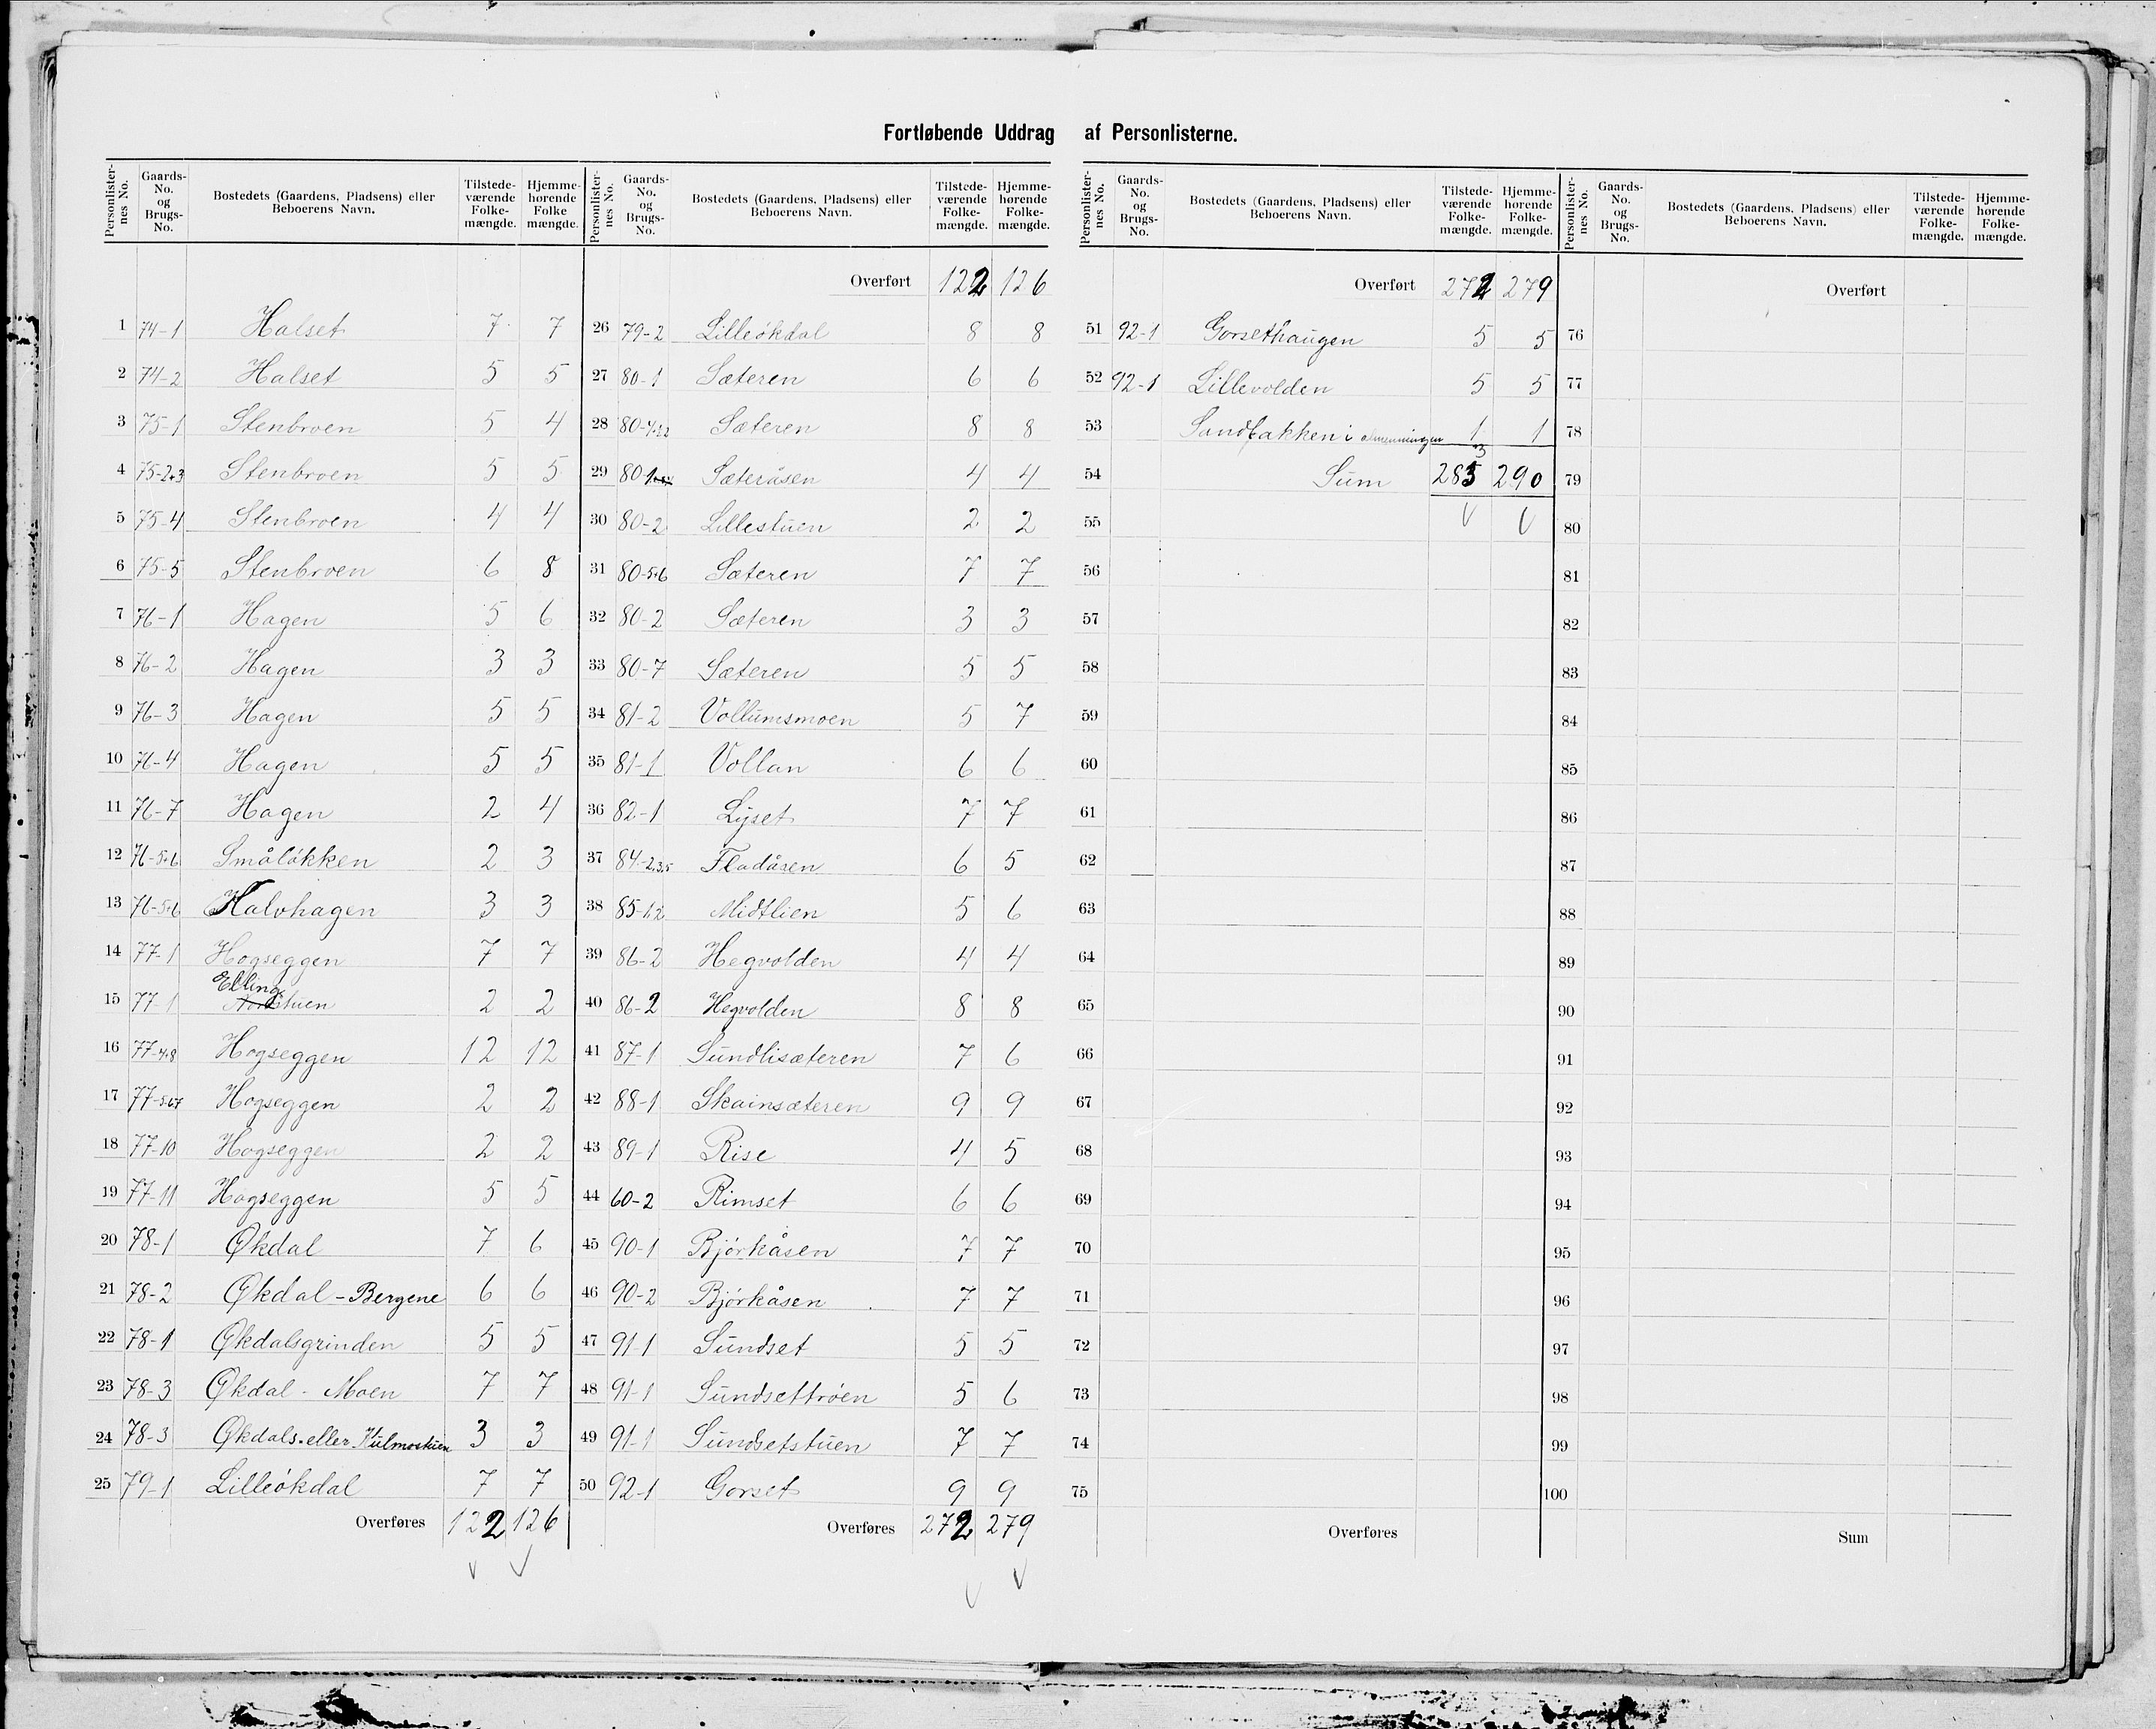 Fortløbende Uddrag af Personlisterne.
Personlisternes No. Gaards-No. og Brugs-No. Bostedets (Gaardens, Pladsens) eller Beboerens Navn. Tilstedeværende Folkemængde. Hjemmehørende Folkemængde.
1 74-1 Halset 7 7
2 74-2 Halset 5 5
3 75-1 Stenbroen 5 4
4 75-2+3 Stenbroen 5 5
5 75-4 Stenbroen 4 4
6 75-5 Stenbroen 6 8
7 76-1 Hagen 5 6
8 76-2 Hagen 3 3
9 76-3 Hagen 5 5
10 76-4 Hagen 5 5
11 76-7 Hagen 2 4
12 76-5+6 Småløkken 2 3
13 76-5+6 Halvhagen 3 3
14 77-1 Hogseggen 7 7
15 77-1 Ellingstuen 2 2
16 77-4+8 Hogseggen 12 12
17 77-5.6.7 Hogseggen 2 2
18 77-10 Hogseggen 2 2
19 77-11 Hogseggen 5 5
20 78-1 Økdal 7 6
21 78-2 Økdal - Bergene 6 6
22 78-1 Økdalsgrinden 5 5
23 78-3 Økdal - Moen 7 7
24 78-3 Økdals- eller Kulmostuen 3 3
25 79-1 Lilleøkdal 7 7
Overføres 122 126
Personlisternes No. Gaards-No. og Brugs-No. Bostedets (Gaardens, Pladsens) eller Beboerens Navn. Tilstedeværende Folkemængde. Hjemmehørende Folkemængde.
Overført 122 126
26 79-2 Lilleøkdal 8 8
27 80-1 Sæteren 6 6
28 80- Sæteren 8 8
29 80-1 Sæteråsen 4 4
30 80-2 Lillestuen 2 2
31 80-5+6 Sæteren 7 7
32 80-2 Sæteren 3 3
33 80-7 Sæteren 5 5
34 81-2 Vollumsmoen 5 7
35 81-1 Vollan 6 6
36 82-1 Lyset 7 7
37 84-2,3,5 Fladåsen 6 5
38 85-1,2 Midtlien 5 6
39 86-2 Hegvolden 4 4
40 86-2 Hegvolden 8 8
41 87-1 Sundlisæteren 7 6
42 88-1 Skainsæteren 9 9
43 89-1 Rise 4 5
44 60-2 Rimset 6 6
45 90-1 Bjørkåsen 7 7
46 90-2 Bjørkåsen 7 7
47 91-1 Sundset 5 5
48 91-1 Sundsettrøen 5 6
49 91-1 Sundsetstuen 7 7
50 92-1 Gorset 9 9
Overføres 272 279
Personlisternes No. Gaards-No. og Brugs-No. Bostedets (Gaardens, Pladsens) eller Beboerens Navn. Tilstedeværende Folkemængde. Hjemmehørende Folkemængde.
Overført 272 279
51 92-1 Gorsethaugen 5 5
52 92-1 Lillevolden 5 5
53 Sandbakken i almenningen 1 1
54 Sum 283 290
55
56
57
58
59
60
61
62
63
64
65
66
67
68
69
70
71
72
73
74
75
Overføres
Personlisternes No. Gaards-No. og Brugs-No. Bostedets (Gaardens, Pladsens) eller Beboerens Navn. Tilstedeværende Folkemængde. Hjemmehørende Folkemængde.
Overført
76
77
78
79
80
81
82
83
84
85
86
87
88
89
90
91
92
93
94
95
96
97
98
99
100
Sum